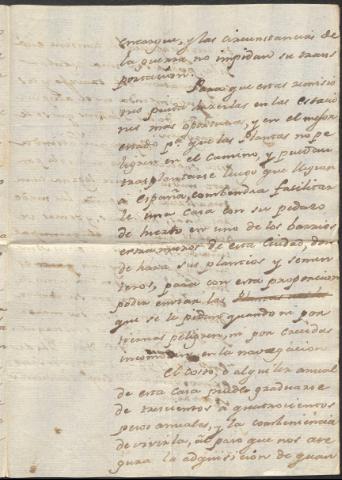 encargue, y las circunstancias de
la guerra no impidan su trans
portacion.
Para que estas remisio
nes pueda hacerlas en las estacio
nes mas oportunas, y en el mejor
estado, pa. que las Plantas no pe
ligren en el Camino, y puedan
trasplantarse luego que lleguen
a España, combendra facilitar
le una Casa con su pedazo
de huerto en uno de los barrios
extramuros de esta Ciudad, don
de hara sus plantios y semen
teros, para con esta proporcion
poder enviar las Plantas
que se le pidan quando ni por
tiernas peligren, ni por crecidas
incomoden en la navegacion.
El costo, ò alquiler anual
de esta Casa puede graduarse
de trescientos à quatrocientos
pesos anuales, y la combeniencia
de vivirla, al paso que nos ase
gura la adquisicion de quan